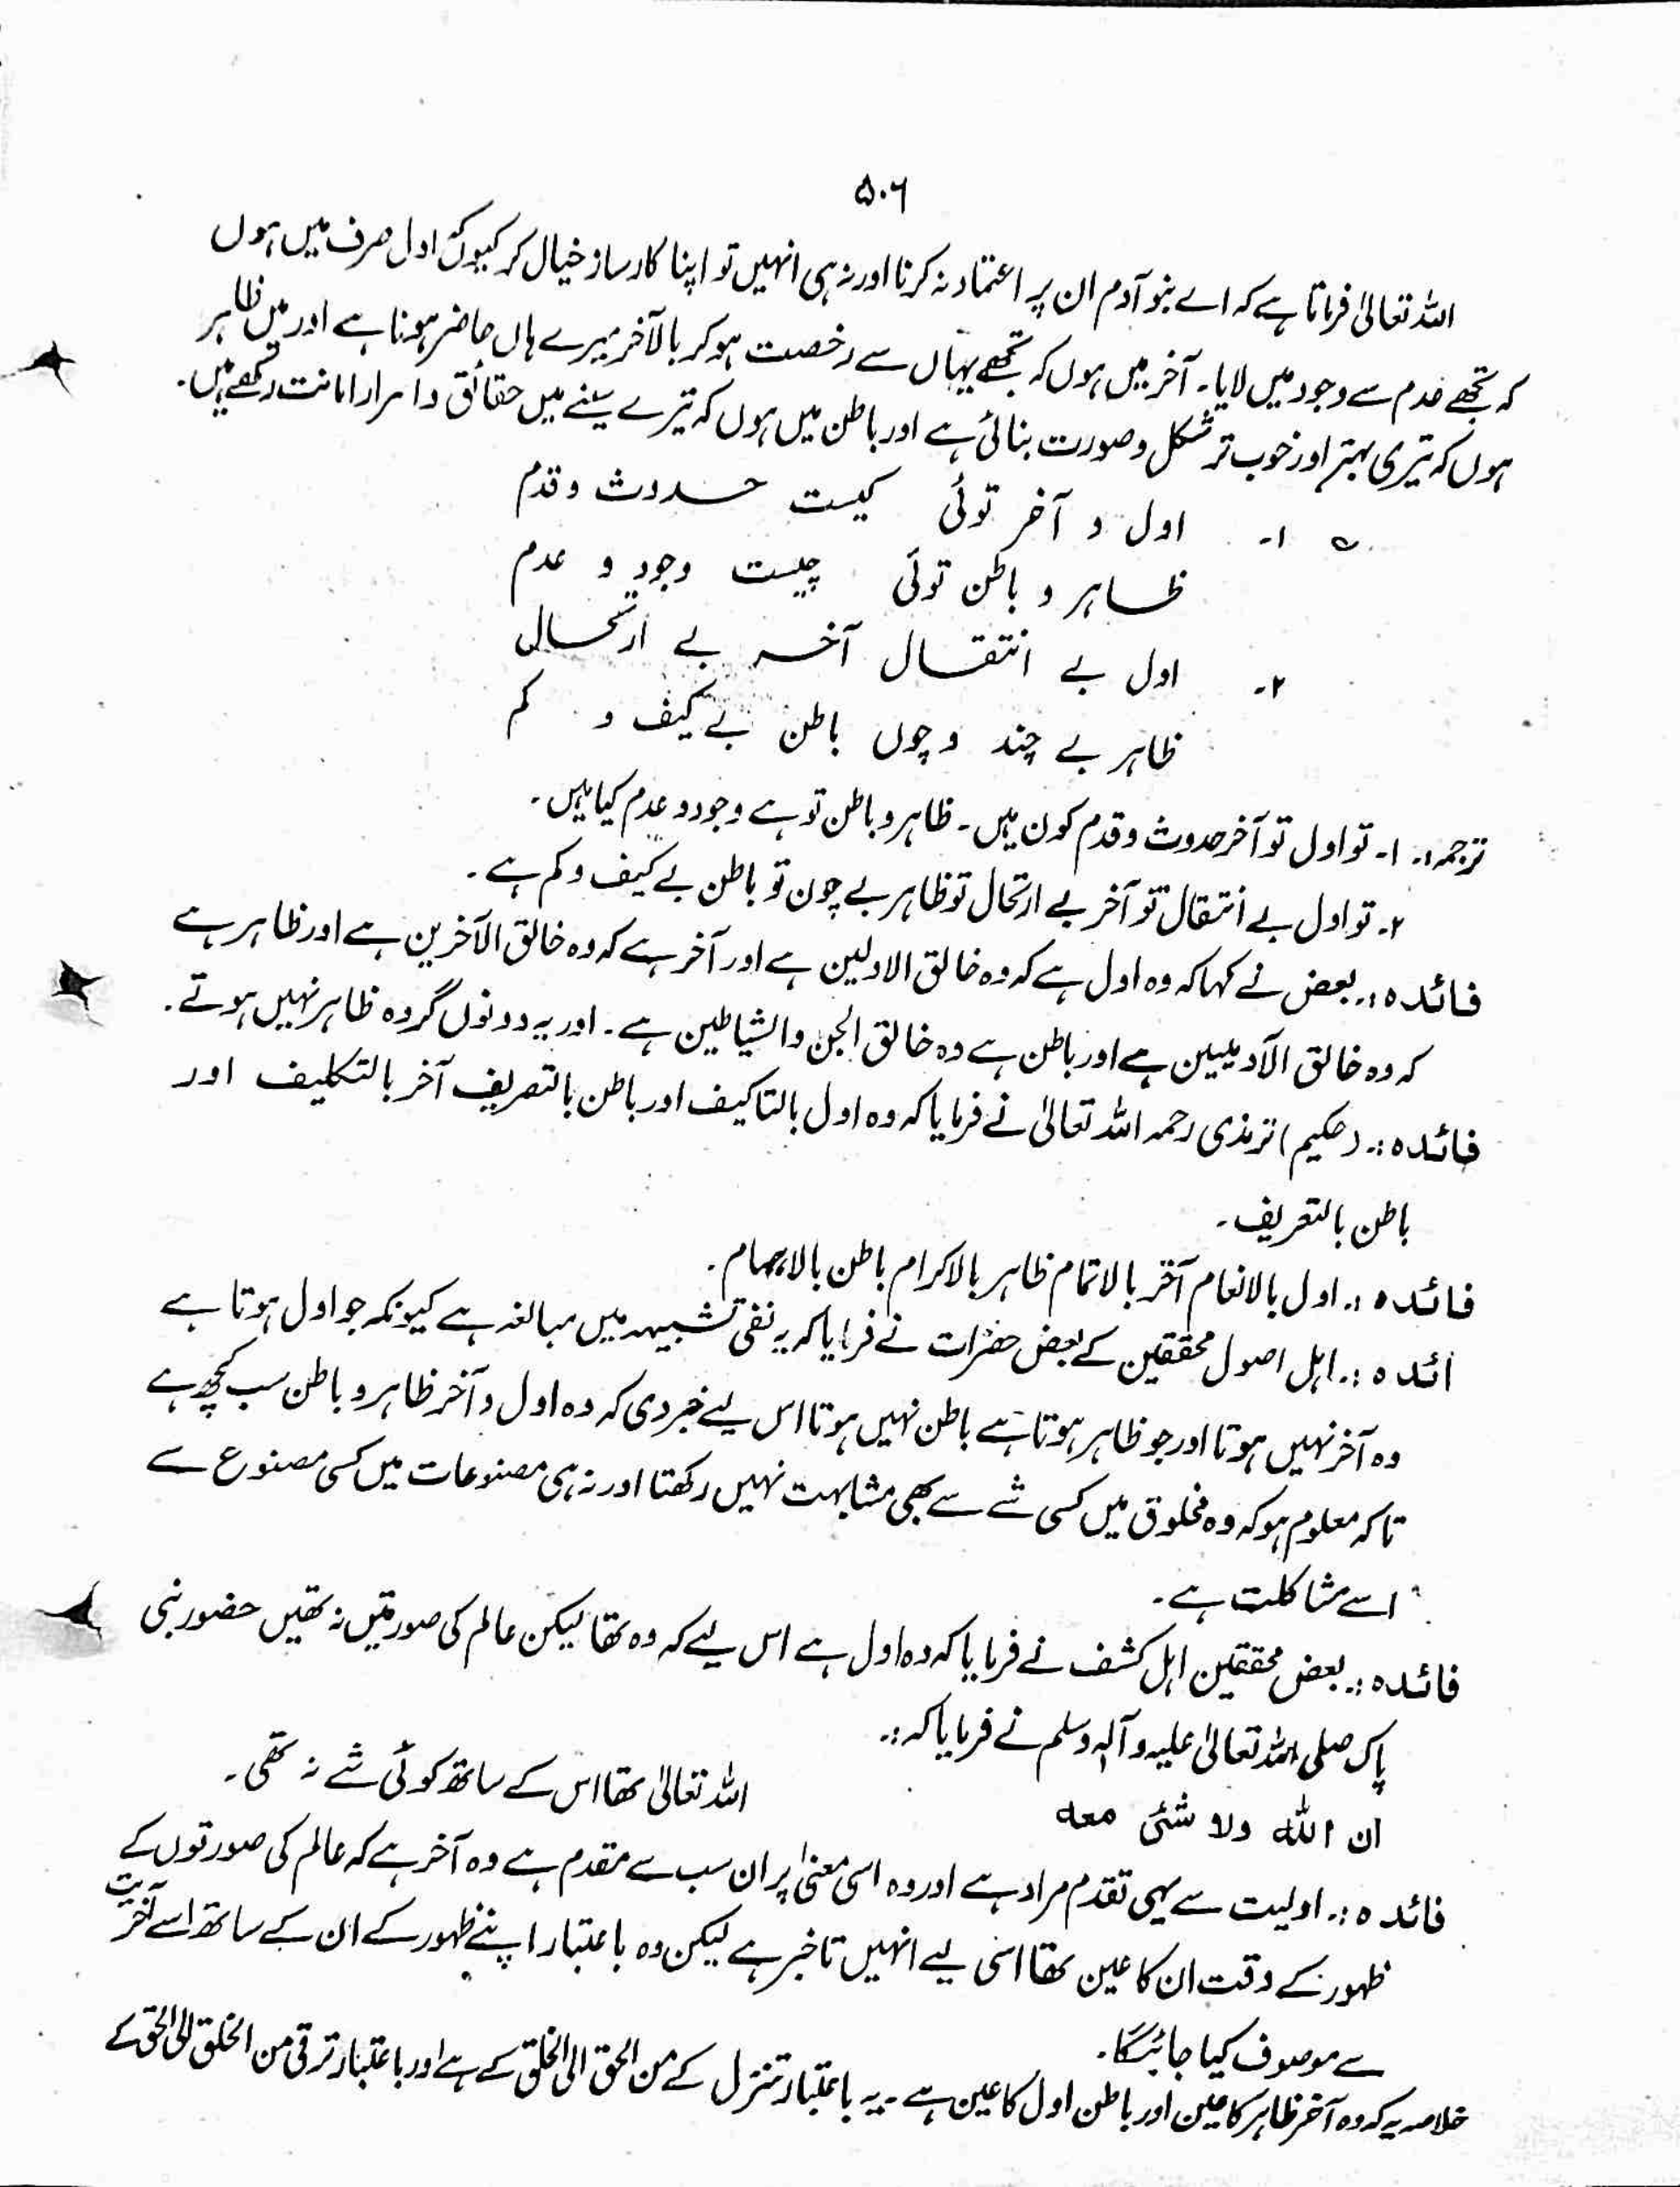 ۵۰۶
اللہ تعالیٰ فرماتا ہے کہ اے بنو آدم ان پر اعتماد نہ کرنا اور نہ ہی انہیں تو اپنا کارساز خیال کر کیونکہ اول صرف میں ہوں
کہ تجھے عدم سے وجود میں لایا۔ آخر میں ہوں کہ تجھے یہاں سے رخصت ہو کر بالآخر میرے ہاں حاضر ہونا ہے اور میں ظاہر
ہوں کہ تیری بہتر اور خوب تر شکل و صورت بنائی ہے اور باطن میں ہوں کہ تیرے سینے میں حقائق و اسرار امانت رکھے ہیں۔
؎ ۱۔ اول و آخر توئی کیست حدوث و قدم
ظاہر و باطن توئی چیست وجود و عدم
۲۔ اول بے انتقال آخر بے ارتحال
ظاہر بے چند و چوں باطن بے کیف و کم
ترجمہ :۔ ۱۔ تو اول تو آخر حدوث و قدم کون ہیں۔ ظاہر و باطن تو ہے وجود و عدم کیا ہیں۔
۲۔ تو اول بے انتقال تو آخر بے ارتحال تو ظاہر بے چون تو باطن بے کیف و کم ہے۔
فائدہ :۔ بعض نے کہا کہ وہ اول ہے کہ وہ خالق الاولین ہے اور آخر ہے کہ وہ خالق الآخرین ہے اور ظاہر ہے
کہ وہ خالق الآدمیین ہے اور باطن ہے وہ خالق الجن والشیاطین ہے۔ اور یہ دونوں گروہ ظاہر نہیں ہوتے۔
فائدہ :۔ (حکیم) ترمذی رحمہ اللہ تعالیٰ نے فرمایا کہ وہ اول بالتاکیف اور باطن بالتصریف آخر بالتکلیف اور
باطن بالتعریف۔
فائدہ :۔ اول بالانعام آخر بالاتمام ظاہر بالاکرام باطن بالابہام۔
ائدہ :۔ اہل اصول محققین کے بعض حضرات نے فرمایا کہ یہ نفی تشبیہہ میں مبالغہ ہے کیونکہ جو اول ہوتا ہے
وہ آخر نہیں ہوتا اور جو ظاہر ہوتا ہے باطن نہیں ہوتا اس لیے خبر دی کہ وہ اول و آخر ظاہر و باطن سب کچھ ہے
تاکہ معلوم ہو کہ وہ مخلوق میں کسی شے سے بھی مشابہت نہیں رکھتا اور نہ ہی مصنوعات میں کسی مصنوع سے
اسے مشاکلت ہے۔
فائدہ :۔ بعض محققین اہل کشف نے فرمایا کہ وہ اول ہے اس لیے کہ وہ تھا لیکن عالم کی صورتیں نہ تھیں حضور نبی
پاک صلی اللہ تعالیٰ علیہ وآلہ وسلم نے فرمایا کہ :۔
ان اللہ ولا شئی معه اللہ تعالیٰ تھا اس کے ساتھ کوئی شے نہ تھی۔
فائدہ :۔ اولیت سے یہی تقدم مراد ہے اور وہ اسی معنیٰ پر ان سب سے مقدم ہے وہ آخر ہے کہ عالم کی صورتوں کے
ظہور کے وقت ان کا عین تھا اسی لیے انہیں تاخیر ہے لیکن وہ باعتبار اپنے ظہور کے ان کے ساتھ اسے آخریت
سے موصوف کیا جائیگا۔
خلاصہ یہ کہ وہ آخر ظاہر کا عین اور باطن اول کا عین ہے۔ یہ باعتبار تنزل کے من الحق الی الخلق کے ہے اور باعتبار ترقی من الخلق الی الحق کے